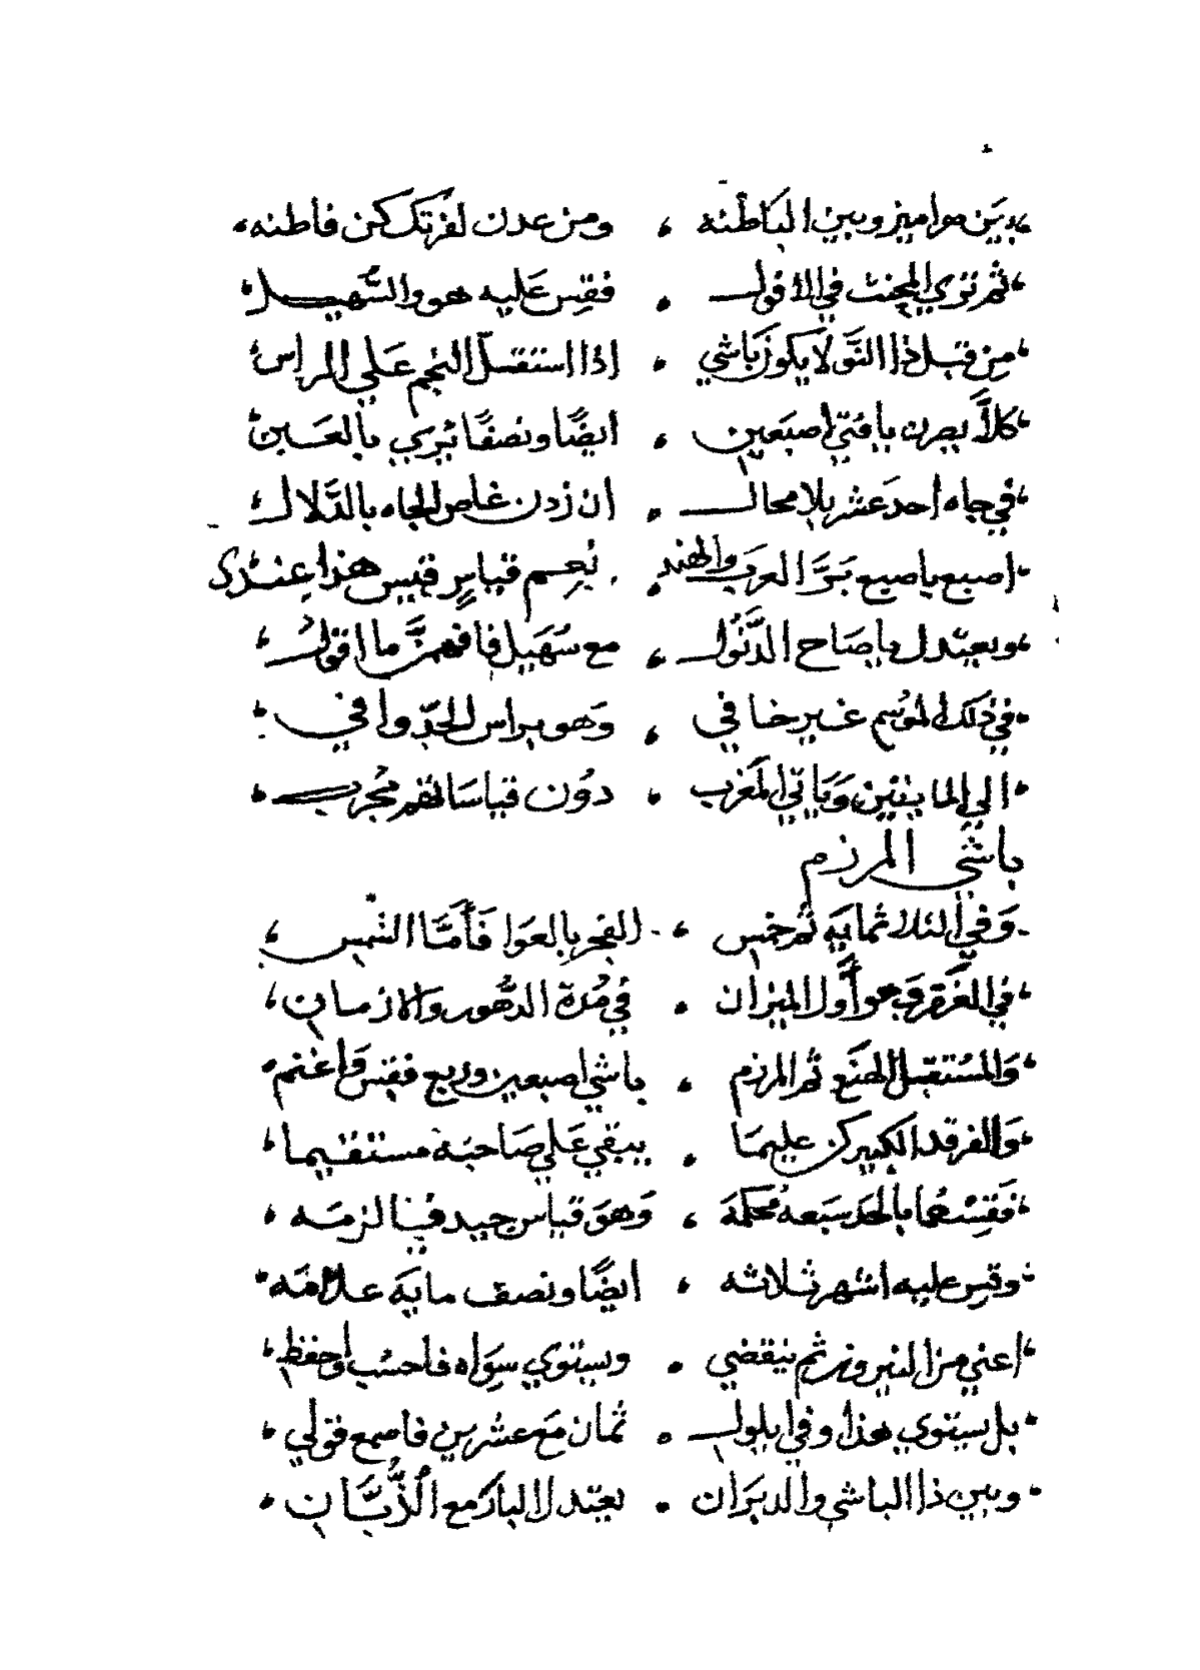 بين هراميز وبين الباطنه ، ومن عدن لفرتك كن فاطنه
ثم تري المحنث في الافول ، فقس عليه هو والسهيل
من قبل ذا التو لا يكون باشي ، اذا استقل النجم علي الراس
كلا يصرن يا فتي اصبعين ، ايضًا ونصفًا تري بالعين
في جاه احد عشر بلا محال ، ان زدن غلص الجاه بالدلال
اصبع باصبع بر العرب والهند ، نعم قياس قيس هذا عندي
ويعتدل يا صاح الذنول ، مع سهيل فافهمن ما اقول
في ذلك الموسم غير خافي ، وهو براس الحد وافي
الي الماينتين وياتي المغرب ، دون قياساتهم مجرب
باشي المرزم
وفي الثلاثمايه ثم خمس ، الفجر بالعوا فأما الشمس
في الغفر وهو أول الميزان ، في مدة الدهور والازمان
والمستقل الهنع ثم المرزم ، باشي اصبعين وربع فقس واغنم
والفرقد الكبير كن عليما ، يبقي علي صاحبه مستقيما
فقسهما بالحد سبعه محكمة ، وهو قياس جيد فينا لزمه
وقس عليه اشهر ثلاثه ، ايضًا ونصف مايه علامه
اعني من النيروز ثم ينقضي ، ويستوي سواه فاحسب واحفظ
بل يستوي هذا وفي ايلول ، ثمان مع عشرين فاسمع قولي
وبين ذا الباشي والدبران ، يعتدل البار مع الذبان